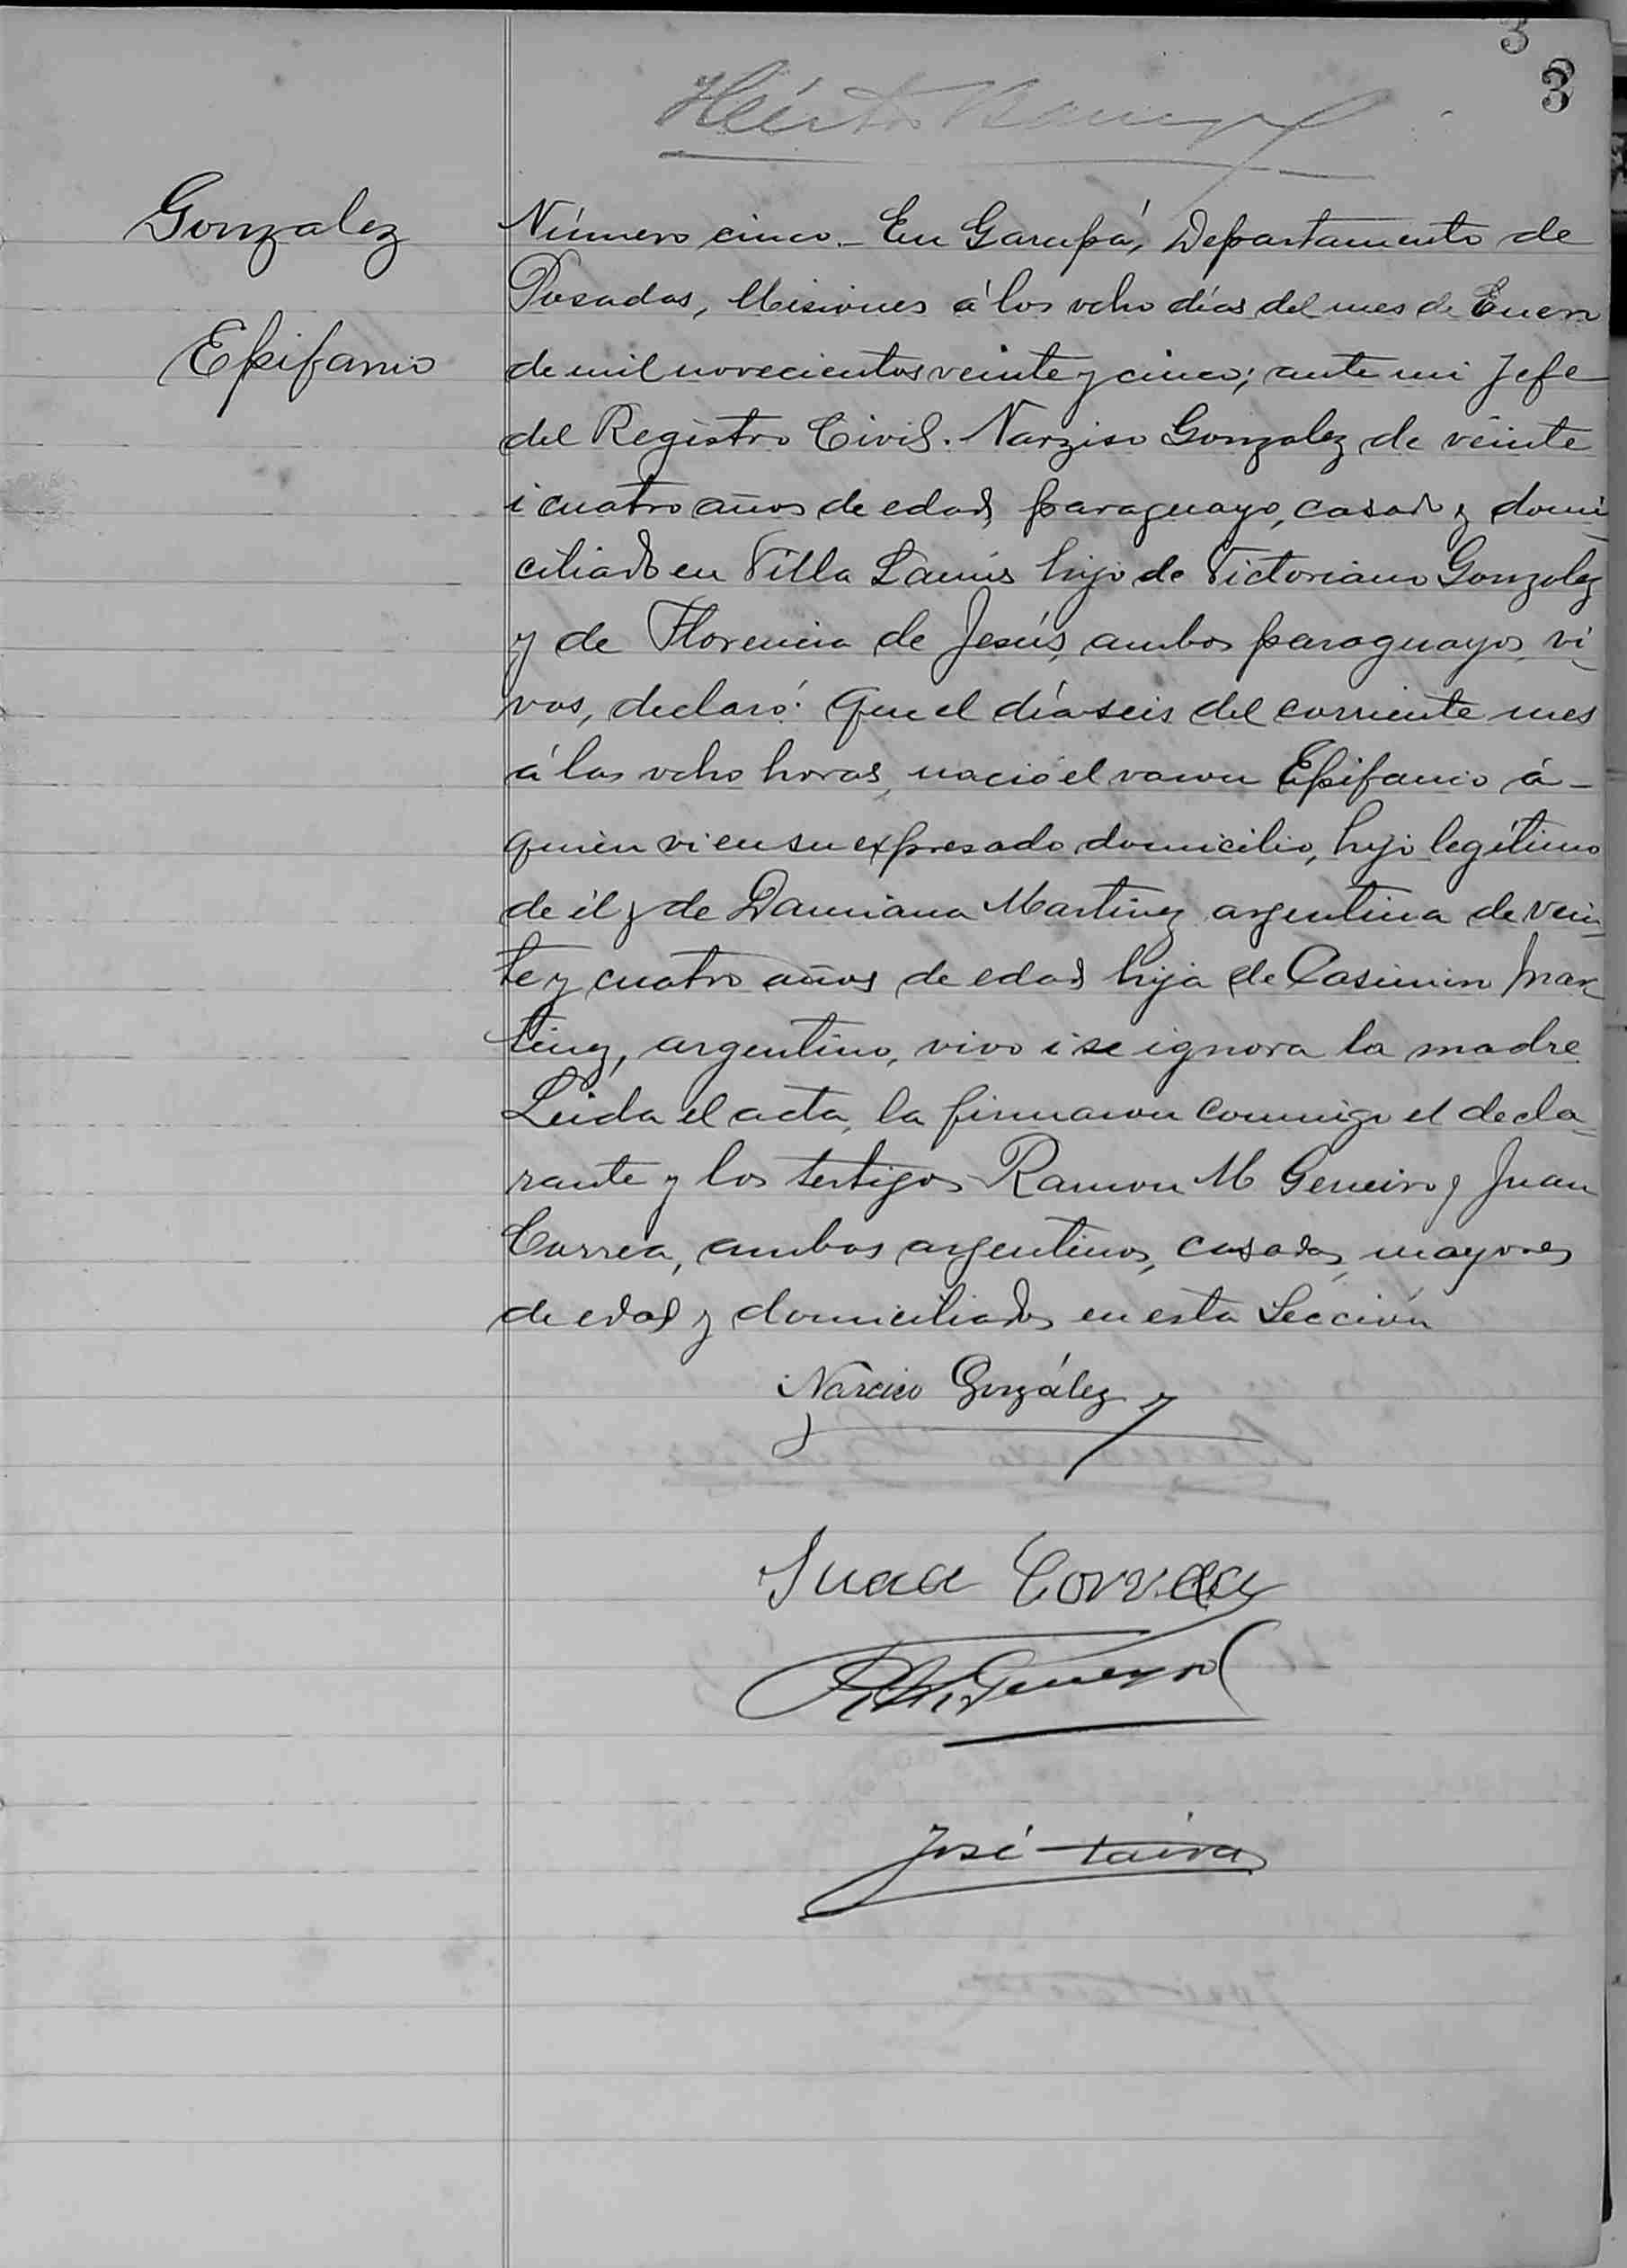 3
3
Gonzalez
Epifanio
Número cinco.- En Garupá, Departamento de
Posadas, Misiones á los ocho días del mes de Enero
de mil novecientos veinte y cinco; ante mi Jefe
del Registro Civil. Narziso Gonzalez de veinte
i cuatro años de edad, paraguayo, casado y domi-
ciliado en Villa Lanús hijo de Victoriano Gonzalez
y de Florencia de Jesús, ambos paraguayos, vi-
vos, declaró: Que el día seis del corriente mes
á las ocho horas, nació el varon Epifanio á-
quien vi en su expresado domicilio, hijo legítimo
de él y de Damiana Martinez argentina de vein-
te y cuatro años de edad hija de Casimiro Mar-
tinez, argentino, vivo i se ignora la madre.
Leida el acta, la firmaron conmigo el decla-
rante y los testigos Ramon M Geneiro y Juan
Correa, ambos argentinos, casados, mayores
de edad y domiciliados en esta Sección
Narciso González
Juaa Correa
José